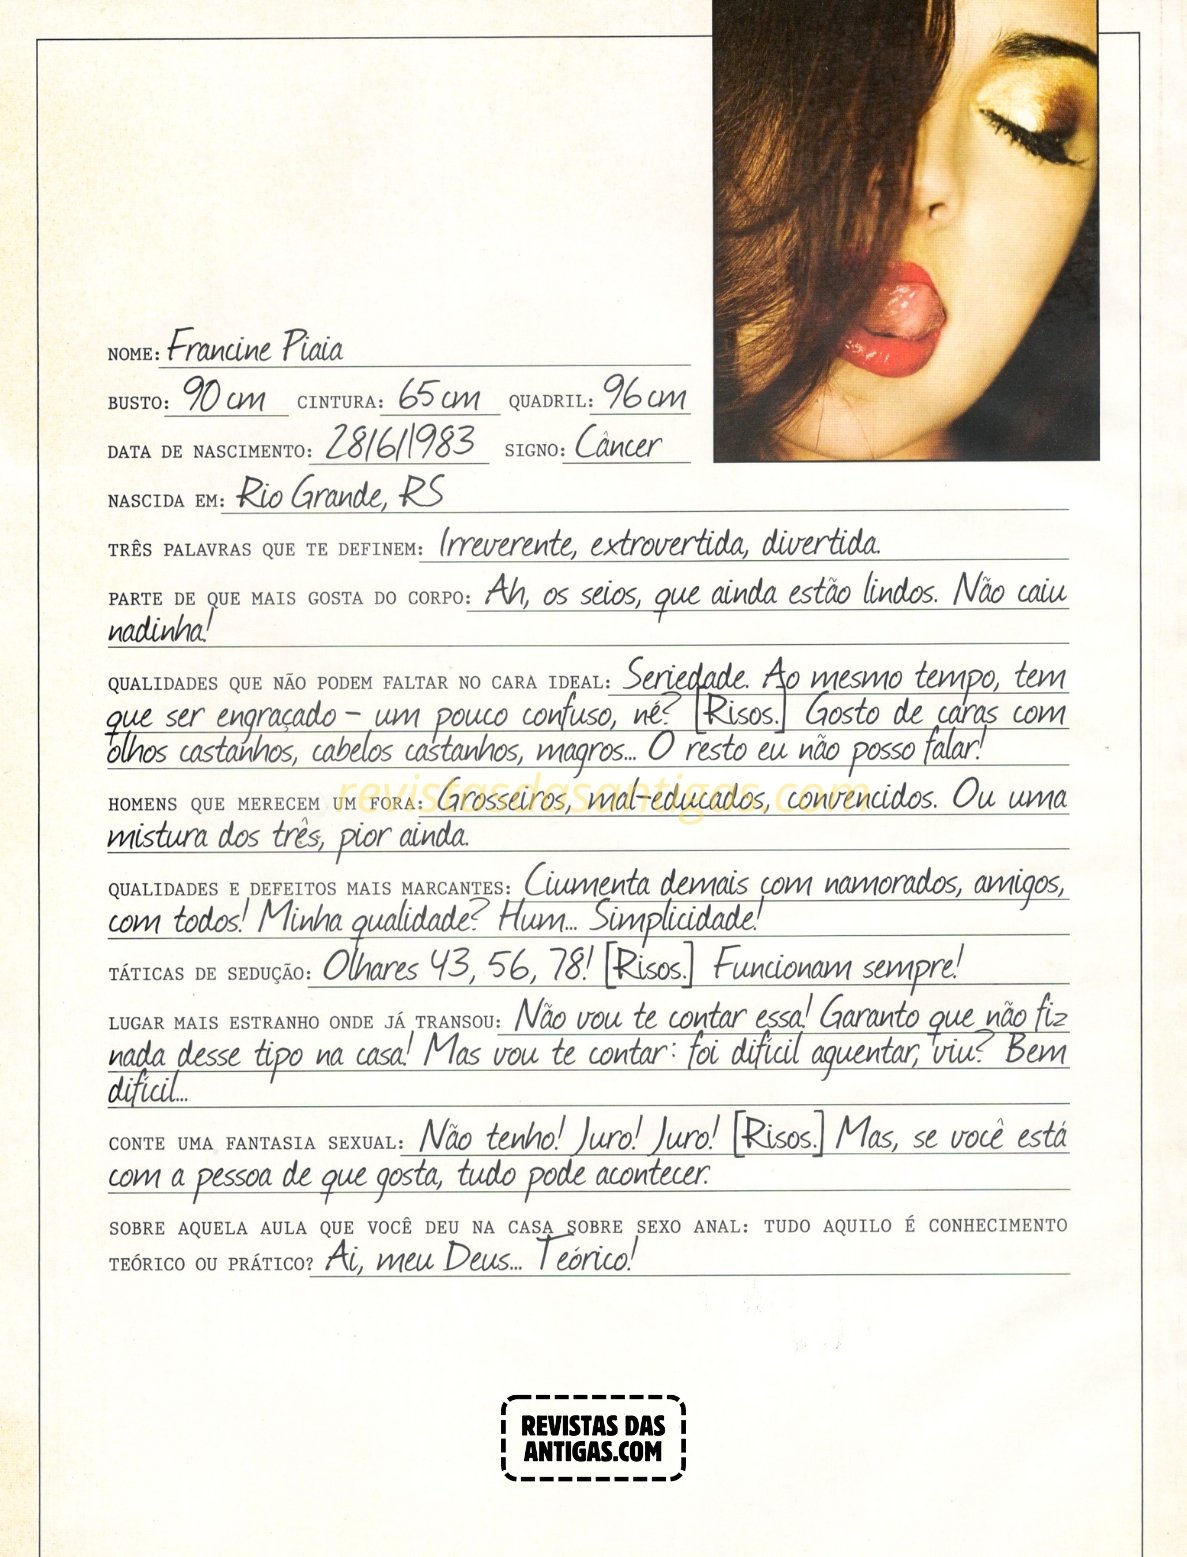 NOME: Francine Piaia
BUSTO: 90 cm CINTURA: 65 cm QUADRIL: 96 cm
DATA DE NASCIMENTO: 28/6/1983 SIGNO: Câncer
NASCIDA EM: Rio Grande, RS
TRÊS PALAVRAS QUE TE DEFINEM: Irreverente, extrovertida, divertida.
PARTE DE QUE MAIS GOSTA DO CORPO: Ah, os seios, que ainda estão lindos. Não caiu
nadinha!
QUALIDADES QUE NÃO PODEM FALTAR NO CARA IDEAL: Seriedade. Ao mesmo tempo, tem
que ser engraçado – um pouco confuso, né? [Risos.] Gosto de caras com
olhos castanhos, cabelos castanhos, magros... O resto eu não posso falar!
revistasdasantigas.com
HOMENS QUE MERECEM UM FORA: Grosseiros, mal-educados, convencidos. Ou uma
mistura dos três, pior ainda.
QUALIDADES E DEFEITOS MAIS MARCANTES: Ciumenta demais com namorados, amigos,
com todos! Minha qualidade? Hum... Simplicidade!
TÁTICAS DE SEDUÇÃO: Olhares 43, 56, 78! [Risos.] Funcionam sempre!
LUGAR MAIS ESTRANHO ONDE JÁ TRANSOU: Não vou te contar essa! Garanto que não fiz
nada desse tipo na casa! Mas vou te contar: foi difícil aguentar, viu? Bem
difícil...
CONTE UMA FANTASIA SEXUAL: Não tenho! Juro! Juro! [Risos.] Mas, se você está
com a pessoa de que gosta, tudo pode acontecer.
SOBRE AQUELA AULA QUE VOCÊ DEU NA CASA SOBRE SEXO ANAL: TUDO AQUILO É CONHECIMENTO
TEÓRICO OU PRÁTICO? Ai, meu Deus... Teórico!
REVISTAS DAS
ANTIGAS.COM